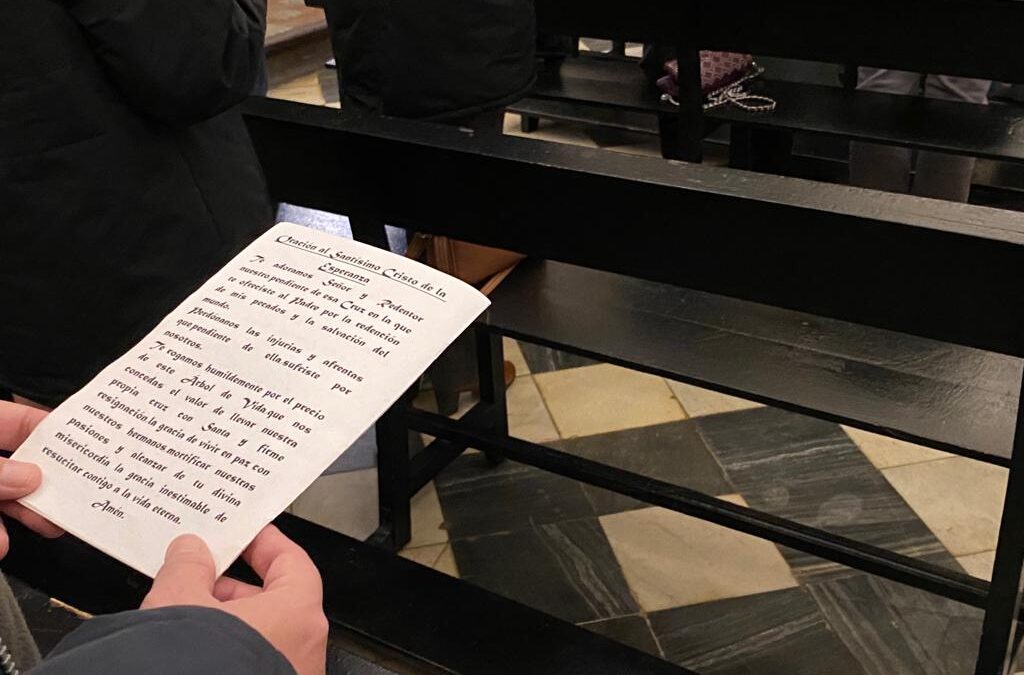 Oración al Santísimo Cristo de la
Esperanza
Te adoramos Señor y Redentor
nuestro pendiente de esa Cruz en la que
te ofreciste al Padre por la redención
de mis pecados y la salvación del
mundo.
Perdónanos las injurias y afrentas
que pendiente de ella.sufriste por
nosotros.
Te rogamos humildemente por el precio
de este Árbol de Vida,que nos
concedas el valor de llevar nuestra
propia cruz con Santa y firme
resignación.la gracia de vivir en paz con
nuestros hermanos.mortificar nuestras
pasiones y alcanzar de tu divina
misericordia la gracia inestimable de
resucitar contigo a la vida eterna.
Amén.